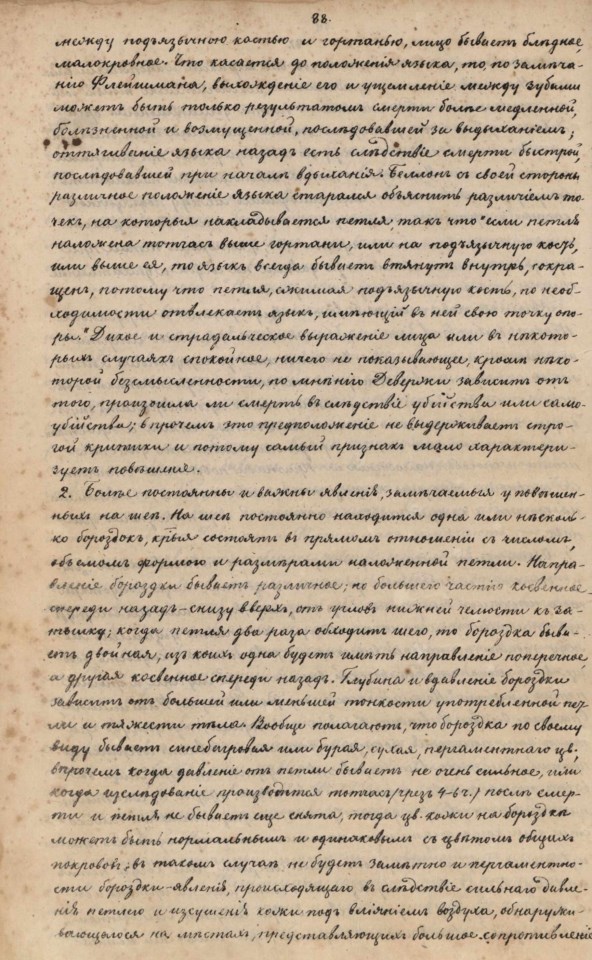 88.
между подъязычною костью и гортанью, лицо бываетъ блѣдное,
малокровное. Что касается до положенія языка, то, по замѣча-
нію Флейшмана, выхожденіе его и ущемленіе между зубами
можетъ быть только результатомъ смерти болѣе медленной,
болѣзненной и возмущенной, послѣдовавшей за выдыханіемъ;
оттягиваніе языка назадъ есть слѣдствіе смерти быстрой,
послѣдовавшей при началѣ вдыханія. Беллокъ съ своей стороны
различное положеніе языка старался объяснить различіемъ то-
чекъ, на которыя накладывается петля, такъ что "если петля
наложена тотчасъ выше гортани, или на подъязычную кость,
или выше ея, то языкъ всегда бываетъ втянутъ внутрь, сокра-
щенъ, потому что петля, сжимая подъязычную кость, по необ-
ходимости отвлекаетъ языкъ, имѣющій въ ней свою точку опо-
ры." Дикое и страдальческое выраженіе лица или въ нѣкото-
рыхъ случаяхъ спокойное, ничего не показывающее, кромѣ нѣко-
торой безсмысленности, по мнѣнію Девержи зависитъ отъ
того, произошла ли смерть въ слѣдствіе убійства или само-
убійства; в прочемъ это предположеніе не выдерживаетъ стро-
гой критики и потому самый признакъ мало характери-
зуетъ повѣшенія.
2. Болѣе постоянны и важны явленія, замѣчаемыя у повѣшен-
ныхъ на шеѣ. На шеѣ постоянно находится одна или нѣсколь-
ко бороздокъ, крыя состоятъ въ прямомъ отношеніи съ числомъ,
объемомъ формою и размѣрами наложенной петли. Напра-
вленіе бороздки бываетъ различное; но большего частію косвенное
спереди назадъ-снизу вверхъ, отъ угловъ нижней челюсти къ за-
тылку; когда петля два раза обходитъ шею, то бороздка быва-
етъ двойная, изъ коихъ одна будетъ имѣть направленіе поперечное,
а другая косвенное спереди назадъ. Глубина и вдавленіе бороздки
зависитъ отъ большей или меньшей тонкости употребленной пет-
ли и тяжести тѣла. Вообще полагаютъ, что бороздка по своему
виду бываетъ синебагровая или бурая, сухая, пергаментнаго цв.;
впрочемъ когда давленіе отъ петли бываетъ не очень сильное, или
когда изслѣдованіе производится тотчасъ (чрезъ 4-6 ч.) послѣ смер-
ти и петля не бываетъ еще снята, тогда цв. кожи на бороздкѣ
можетъ быть нормальнымъ и одинаковымъ съ цвѣтомъ общихъ
покрововъ; въ такомъ случаѣ не будетъ замѣтно и пергаментно-
сти бороздки-явленія, происходящаго въ слѣдствіе сильнаго давле-
нія петлею и изсушенія кожи подъ вліяніемъ воздуха, обнаружи-
вающагося на мѣстахъ, представляющихъ большое сопротивленіе